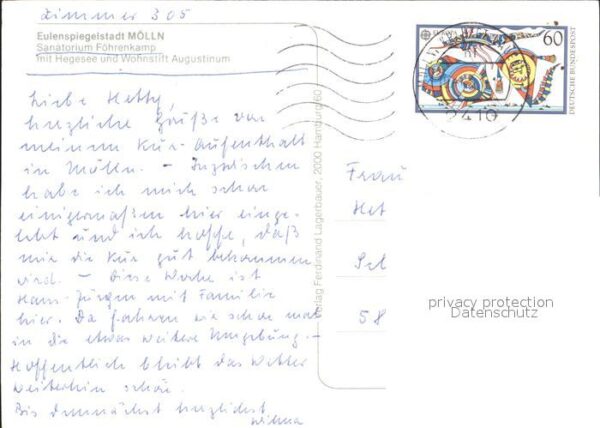 Zimmer 305
Eulenspiegelstadt MÖLLN
Sanatorium Föhrenkamp
mit Hegesee und Wohnstift Augustinum
Liebe Hetty,
herzliche Grüße von
meinem Kur-Aufenthalt
in Mölln. – Inzwischen
habe ich mich schon
einigermaßen hier einge-
lebt und ich hoffe, daß
mir die Kur gut bekommen
wird. – Diese Woche ist
Hans-Jürgen mit Familie
hier. Da fahren wir schon mal
in die etwas weitere Umgebung. –
Hoffentlich bleibt das Wetter
weiterhin schön.
Bis demnächst herzlichst
Wilma
Verlag Ferdinand Lagerbauer, 2000 Hamburg 60
60
DEUTSCHE BUNDESPOST
2410
Frau
Het
Sch
58
privacy protection
Datenschutz